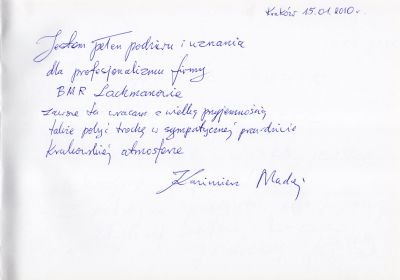 Kraków 15.01.2010r.
Jestem pełen podziwu i uznania
dla profesjonalizmu firmy
BMR Lackmanowie
zawsze tu wracam z wielką przyjemnością
także pobyć trochę w sympatycznej prawdziwie
Krakowskiej atmosferze
Kazimierz Madej